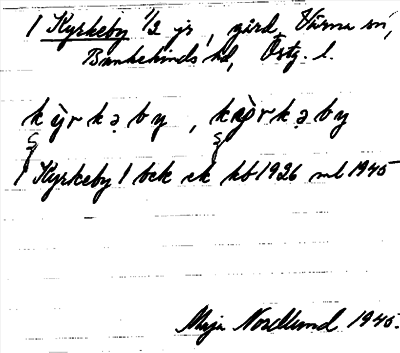 1 Kyrkeby 1/2 jr, gård, Värna sn,
Bankekinds hd, Östg. l.
kỳrkəby, kỳrkəby
1 Kyrkeby 1 bek ek hb 1926 ml 1945
Maja Nordlund 1945.